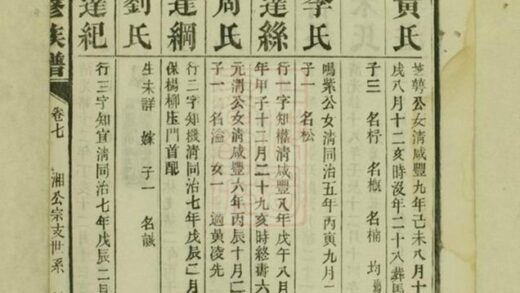 黃氏
芝蕚公女清咸豐九年己未八月十
戌八月十二亥時沒年二十八葬馬
子三 名杅 名概 名楠 均
李氏
鳴紫公女清同治五年丙寅九月二
子一 名松
達絲
行一字知機清咸豐八年戊午八月
年甲子十二月二十九亥時終壽六
周氏
元清公女清咸豐六年丙辰十月二
子一 名淦 女一 適黃凌先
達綱
行二字知機清同治七年戊辰二月
保楊柳庄門首配
劉氏
生未詳 嫁 子一 名誠
達紀
行三字知宣清同治七年戊辰二月
修族譜
卷七 湘公宗支世系